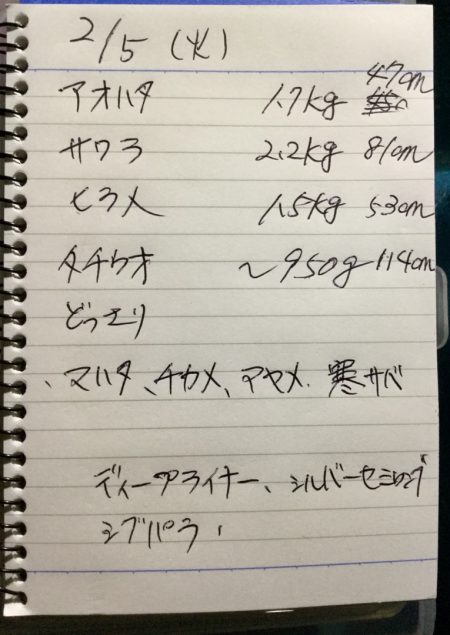 2/5 (火)
アオハタ 1.7kg 47cm
サワラ 2.2kg 81cm
ヒラメ 1.5kg 53cm
タチウオ ~950g 114cm
どっさり
、マハタ、チカメ、アヤメ. 寒サバ
ディープライナー、シルバーセミロング
シブパラ、